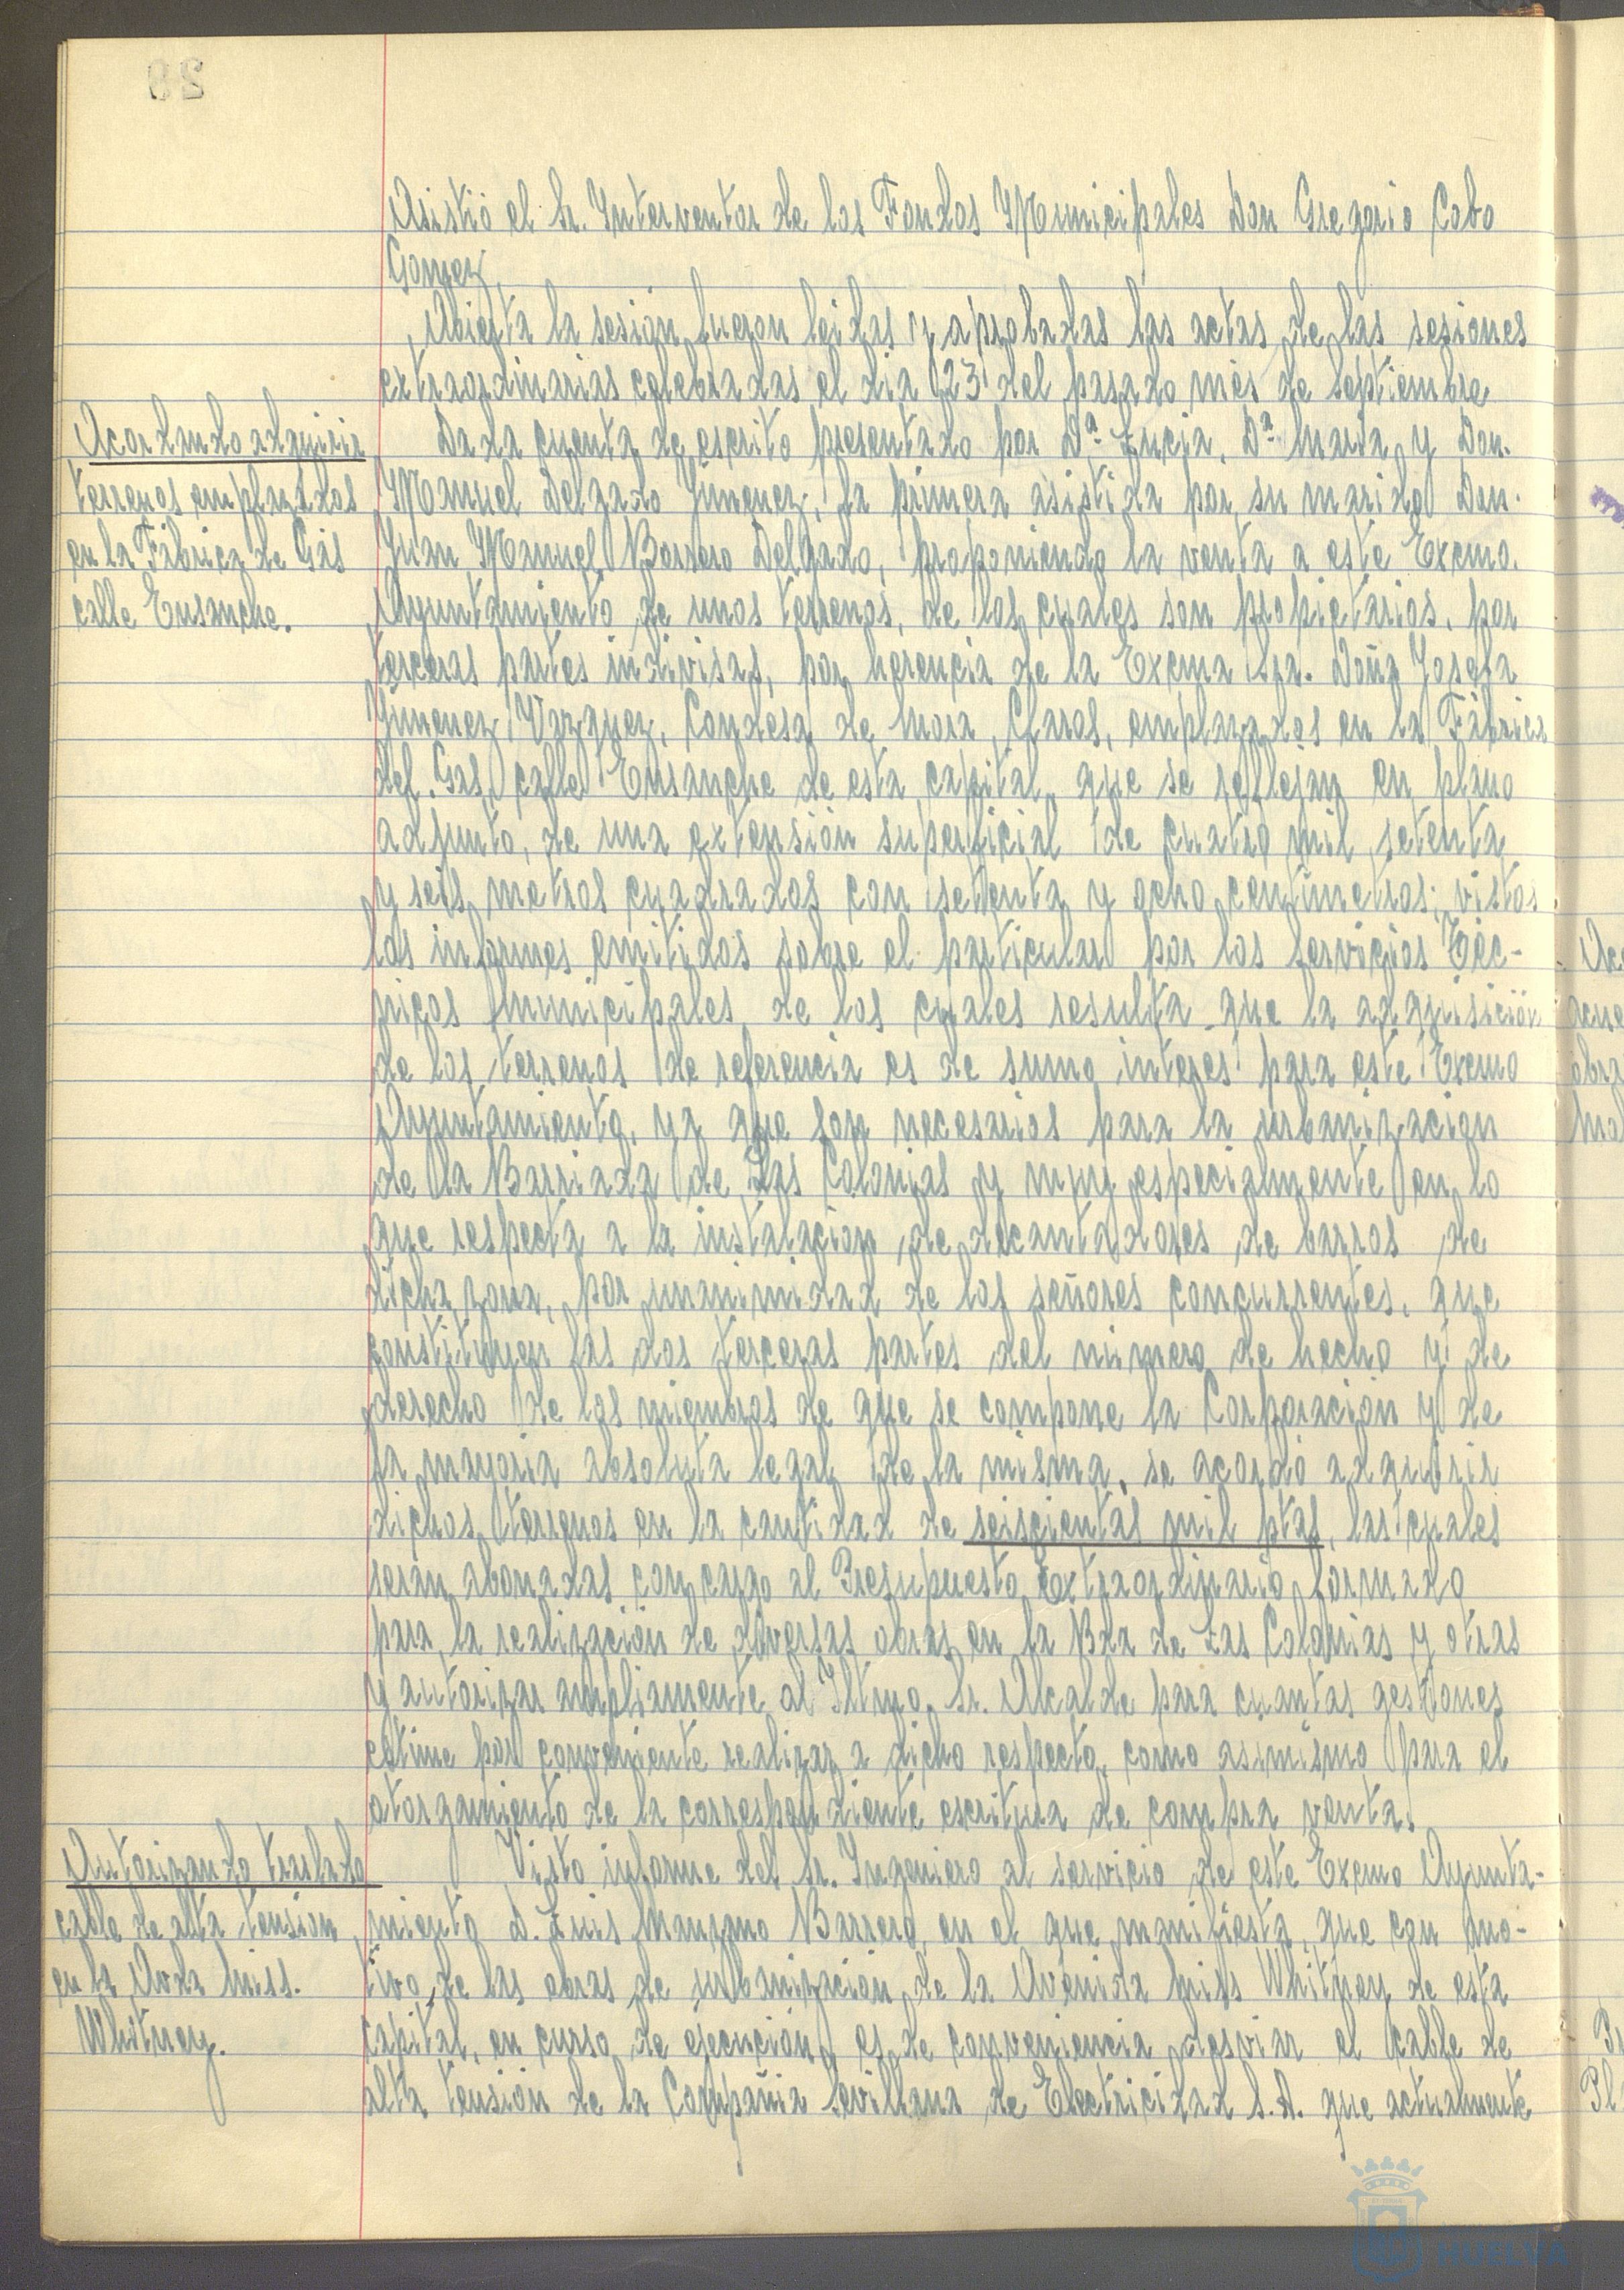 Asistió el Sr. Interventor de los Fondos Municipales Don Gregorio Cabo
Gomez.
Abierta la sesión fueron leidas y aprobadas las actas de las sesiones
extraordinarias celebradas el dia 23 del pasado mes de Septiembre
Acordando adquirir
terrenos emplazados
en la Fábrica de Gas
calle Ensanche.
Dada cuenta de escrito presentado por Dª Lucia, Dª Maria y Don.
Manuel Delgado Jimenez, la primera asistida por su marido Don.
Juan Manuel Borrero Delgado, proponiendo la venta a este Excmo.
Ayuntamiento de unos terrenos, de los cuales son propietarios, por
terceras partes indivisas, por herencia de la Excma Sra. Doña Josefa
Jimenez Vazquez, Condesa de Mora Claros, emplazados en la Fábrica
del Gas, calle Ensanche de esta capital, que se reflejan en plano
adjunto, de una extensión superficial de cuatro mil setenta
y seis metros cuadrados con setenta y ocho centimetros; vistos
los informes emitidos sobre el particular por los Servicios Téc-
nicos Municipales, de los cuales resulta que la adquisición
de los terrenos de referencia es de sumo interes para este Excmo
Ayuntamiento, ya que son necesarios para la urbanizacion
de la Barriada de Las Colonias y muy especialmente en lo
que respecta a la instalacion de decantadores de barros de
dicha zona, por unanimidad de los señores concurrentes, que
constituyen las dos terceras partes del número de hecho y de
derecho de los miembros de que se compone la Corporación y de
la mayoria absoluta legal de la misma, se acordó adquirir
dichos terrenos en la cantidad de seiscientas mil ptas, las cuales
serán abonadas con cargo al Presupuesto Extraordinario formado
para la realización de diversas obras en la Bda de Las Colonias y otras
y autorizar ampliamente al Iltmo. Sr. Alcalde para cuantas gestiones
estime por conveniente realizar a dicho respecto, como asimismo para el
otorgamiento de la correspondiente escritura de compra venta.
Autorizando traslado
cable de alta tension
en la Avda Miss.
Whitney.
Visto informe del Sr. Ingeniero al servicio de este Excmo Ayunta-
miento D. Luis Manzano Barrero, en el que manifiesta, que con mo-
tivo de las obras de urbanizacion de la Avenida Miss Whitney de esta
capital, en curso de ejecucion, es de conveniencia desviar el cable de
alta tensión de la Compañia Sevillana de Electricidad S.A. que actualmente
HUELVA